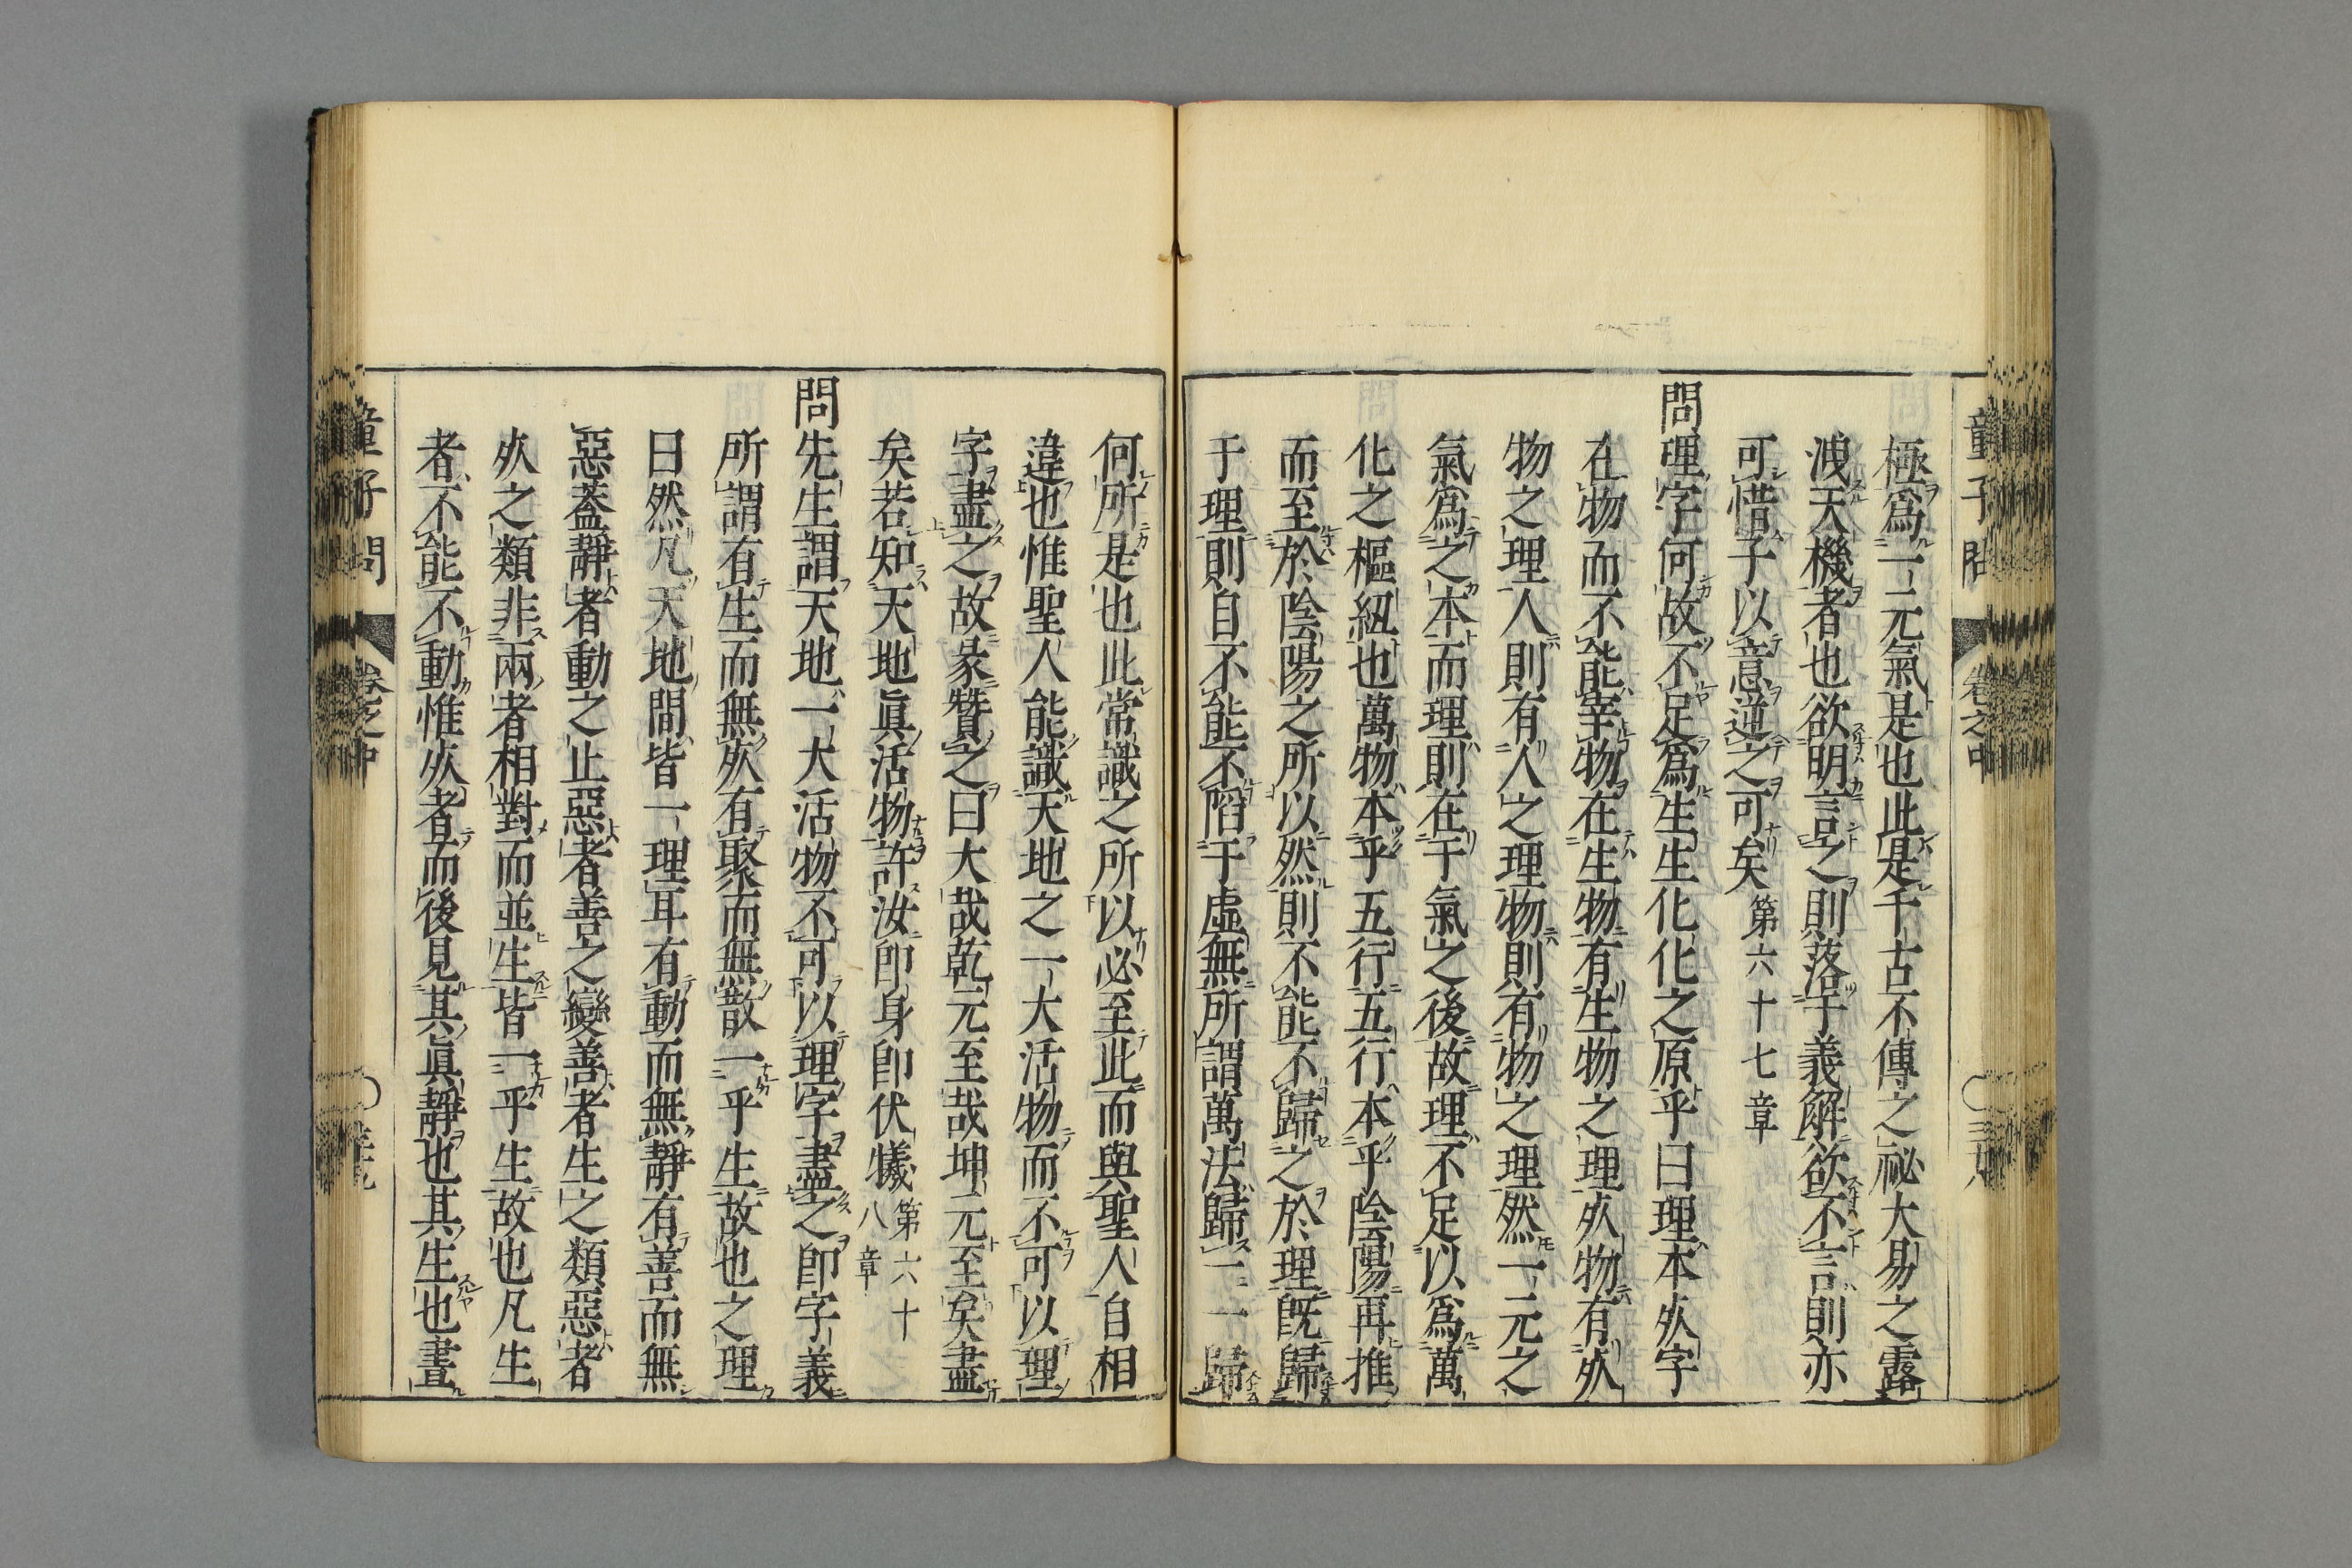 極爲一元氣是也此是千古不傳之祕大易之露
洩天機者也欲明言之則落于義解欲不言則亦
可惜子以意逆之可矣 第六十七章
問理字何故不足爲生生化化之原乎曰理本死字
在物而不能宰物在生物有生物之理死物有死
物之理人則有人之理物則有物之理然一元之
氣爲之本而理則在于氣之後故理不足以爲萬
化之樞紐也萬物本乎五行五行本乎陰陽再推
而至於陰陽之所以然則不能不歸之於理既歸
于理則自不能不陷于虛無所謂萬法歸一一歸
何所是也此常識之所以必至此而與聖人自相
違也惟聖人能識天地之一大活物而不可以理
字盡之故彖贊之曰大哉乾元至哉坤元至矣盡
矣若知天地眞活物許汝卽身卽伏犧 第六十八章
問先生謂天地一大活物不可以理字盡之卽字義
所謂有生而無死有聚而無散一乎生故也之理
曰然凡天地間皆一理耳有動而無靜有善而無
惡蓋靜者動之止惡者善之變善者生之類惡者
死之類非兩者相對而並生皆一乎生故也凡生
者不能不動惟死者而後見其眞靜也其生也晝
童子問 卷之中
童子問 卷之中